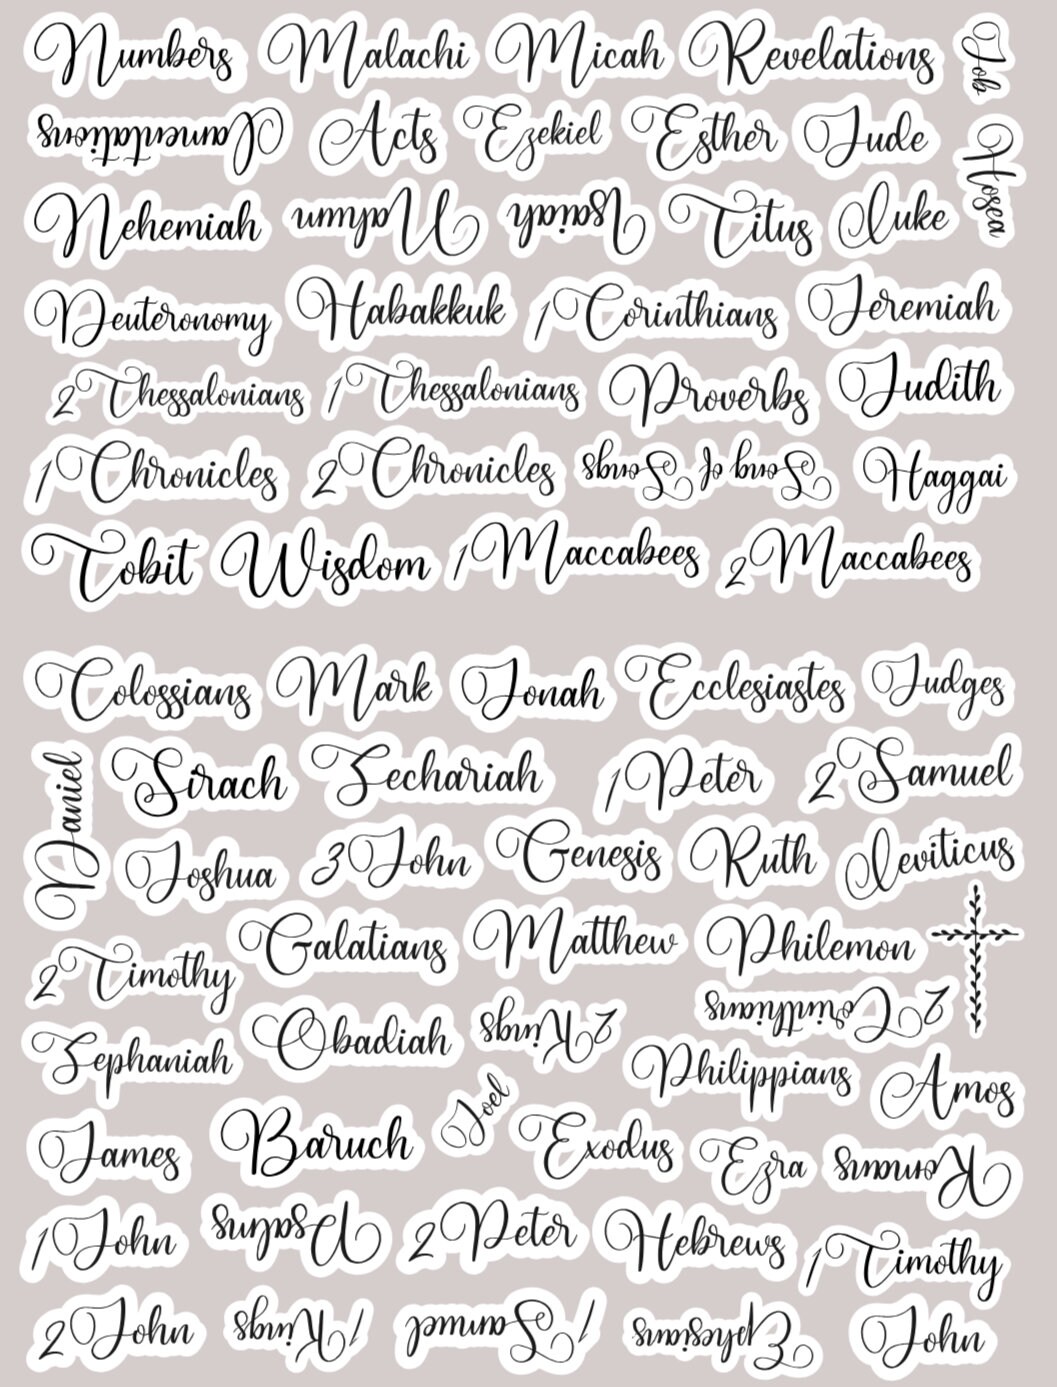 Numbers Malachi Micah Revelations Job
Lamentations Acts Ezekiel Esther Jude Hosea
Nehemiah Nahum Isaiah Titus Luke
Deuteronomy Habakkuk 1 Corinthians Jeremiah
2 Thessalonians 1 Thessalonians Proverbs Judith
1 Chronicles 2 Chronicles Song of Songs Haggai
Tobit Wisdom 1 Maccabees 2 Maccabees
Colossians Mark Jonah Ecclesiastes Judges
Daniel Sirach Zechariah 1 Peter 2 Samuel
Joshua 3 John Genesis Ruth Leviticus
2 Timothy Galatians Matthew Philemon
Zephaniah Obadiah 2 Kings 2 Corinthians
Philippians Amos
James Baruch Joel Exodus Ezra Romans
1 John Psalms 2 Peter Hebrews 1 Timothy
2 John 1 Kings 1 Samuel Ephesians John